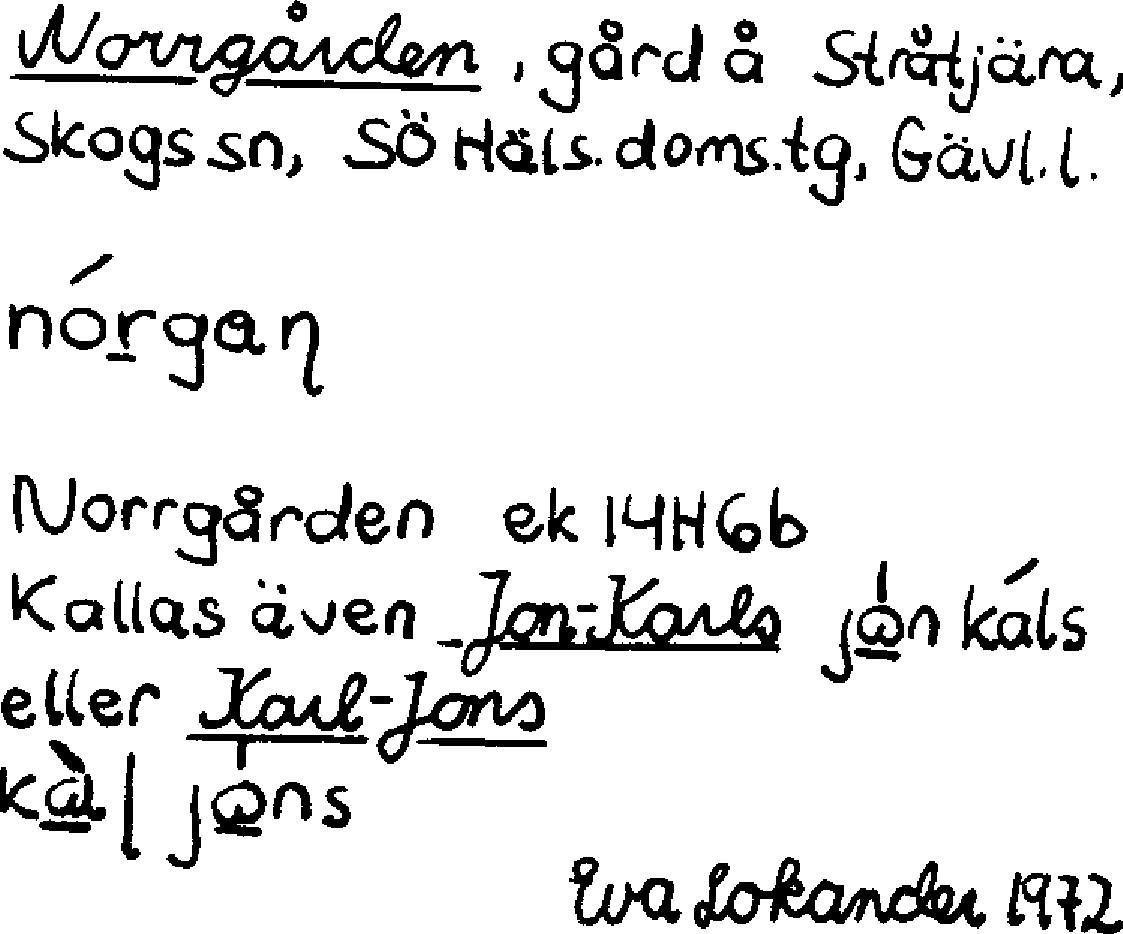 Norrgården, gård å Stråtjära,
Skogs sn, SÖ Häls. doms.tg, Gävl. l.
nórgaɳ
Norrgården ek 14H6b
Kallas även Jon-Karls jɷ̲́n káls
eller Karl-Jons
kɑ̲̀ɭ jɷ̲́ns
Eva Lokander 1972